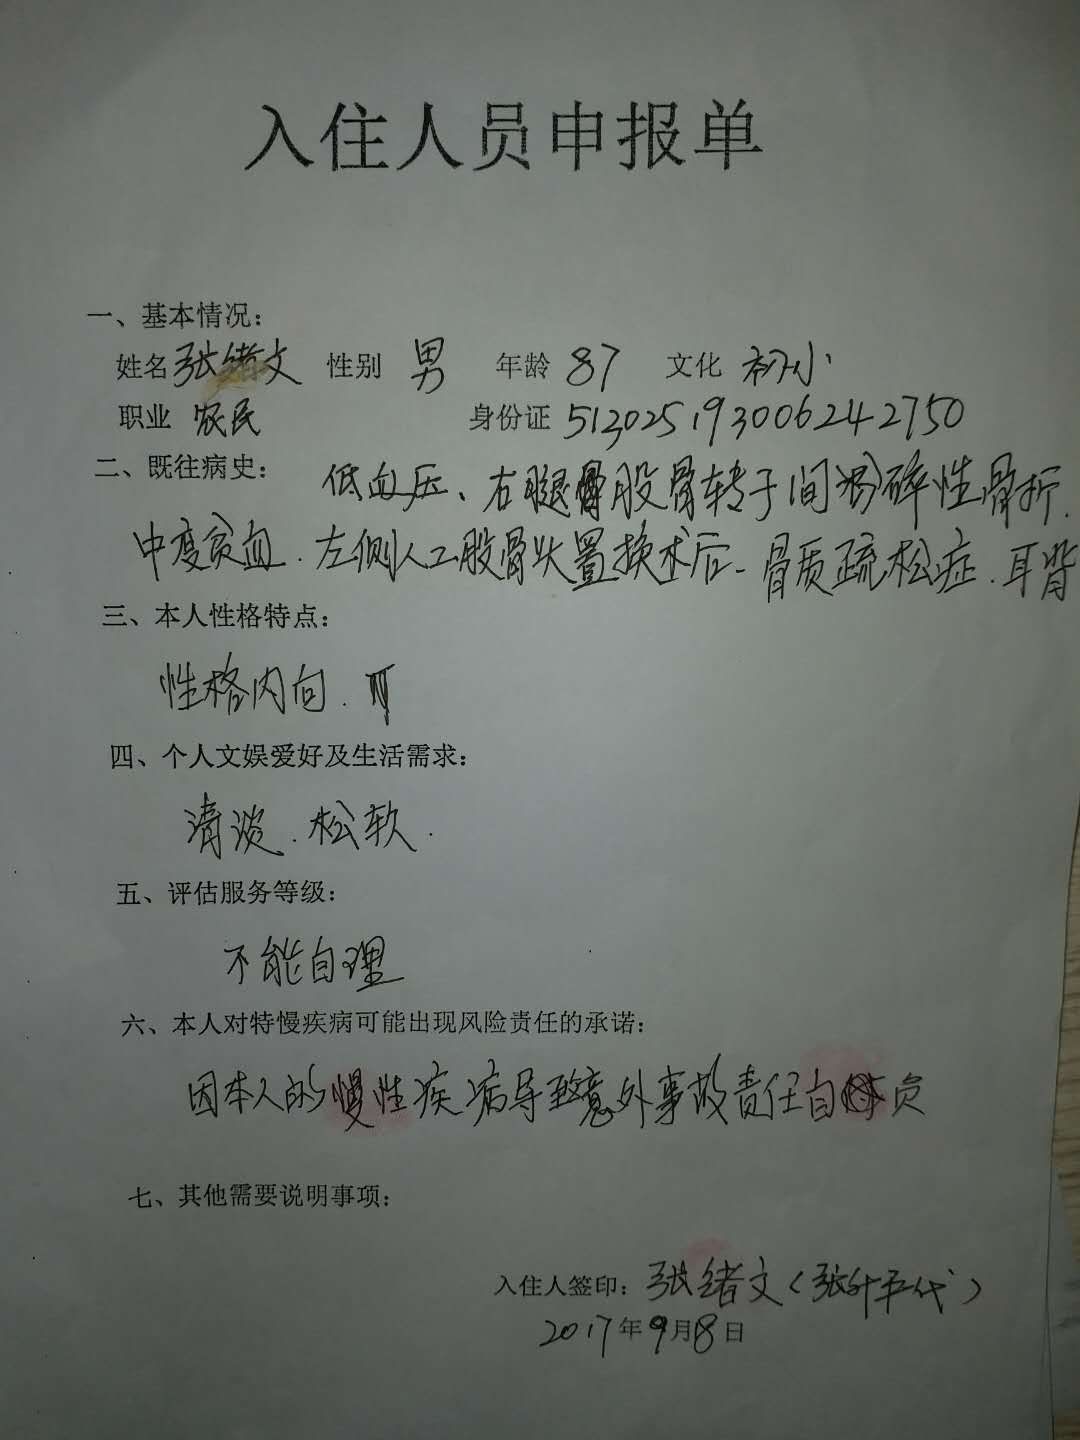 入住人员申报单
一、基本情况：
姓名 张绪文 性别 男 年龄 87 文化 初小
职业 农民 身份证 513025193006242750
二、既往病史： 低血压、右腿股骨转子间粉碎性骨折.
中度贫血.左侧人工股骨头置换术后-骨质疏松症.耳背
三、本人性格特点：
性格内向.
四、个人文娱爱好及生活需求：
清淡.松软.
五、评估服务等级：
不能自理
六、本人对特慢疾病可能出现风险责任的承诺：
因本人的慢性疾病导致意外事故责任自负
七、其他需要说明事项：
入住人签印：张绪文（张 代）
2017年9月8日